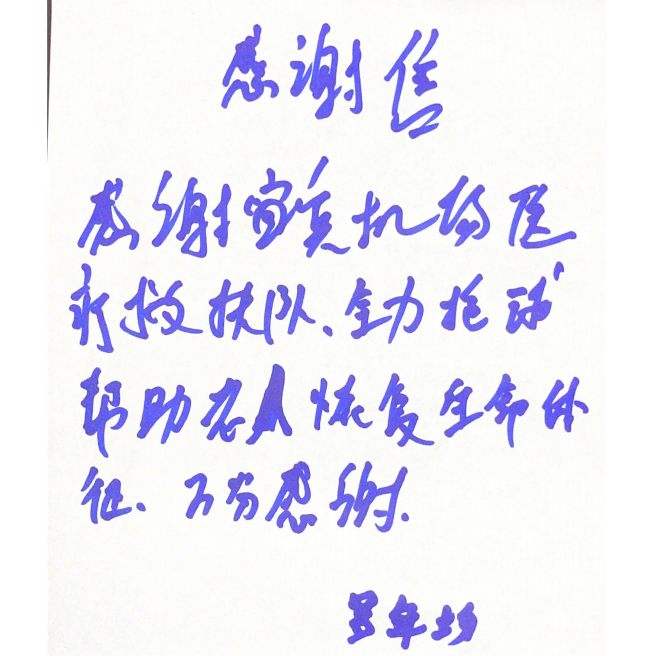 感谢信
感谢宜宾机场医
疗救扶队、全力抢救
帮助老人恢复生命体
征、万分感谢.